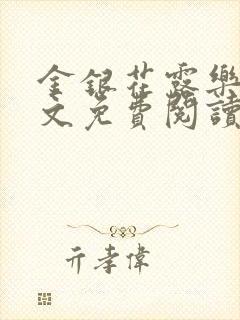 金銀花露樂
文免費閱讀
亓孝偉